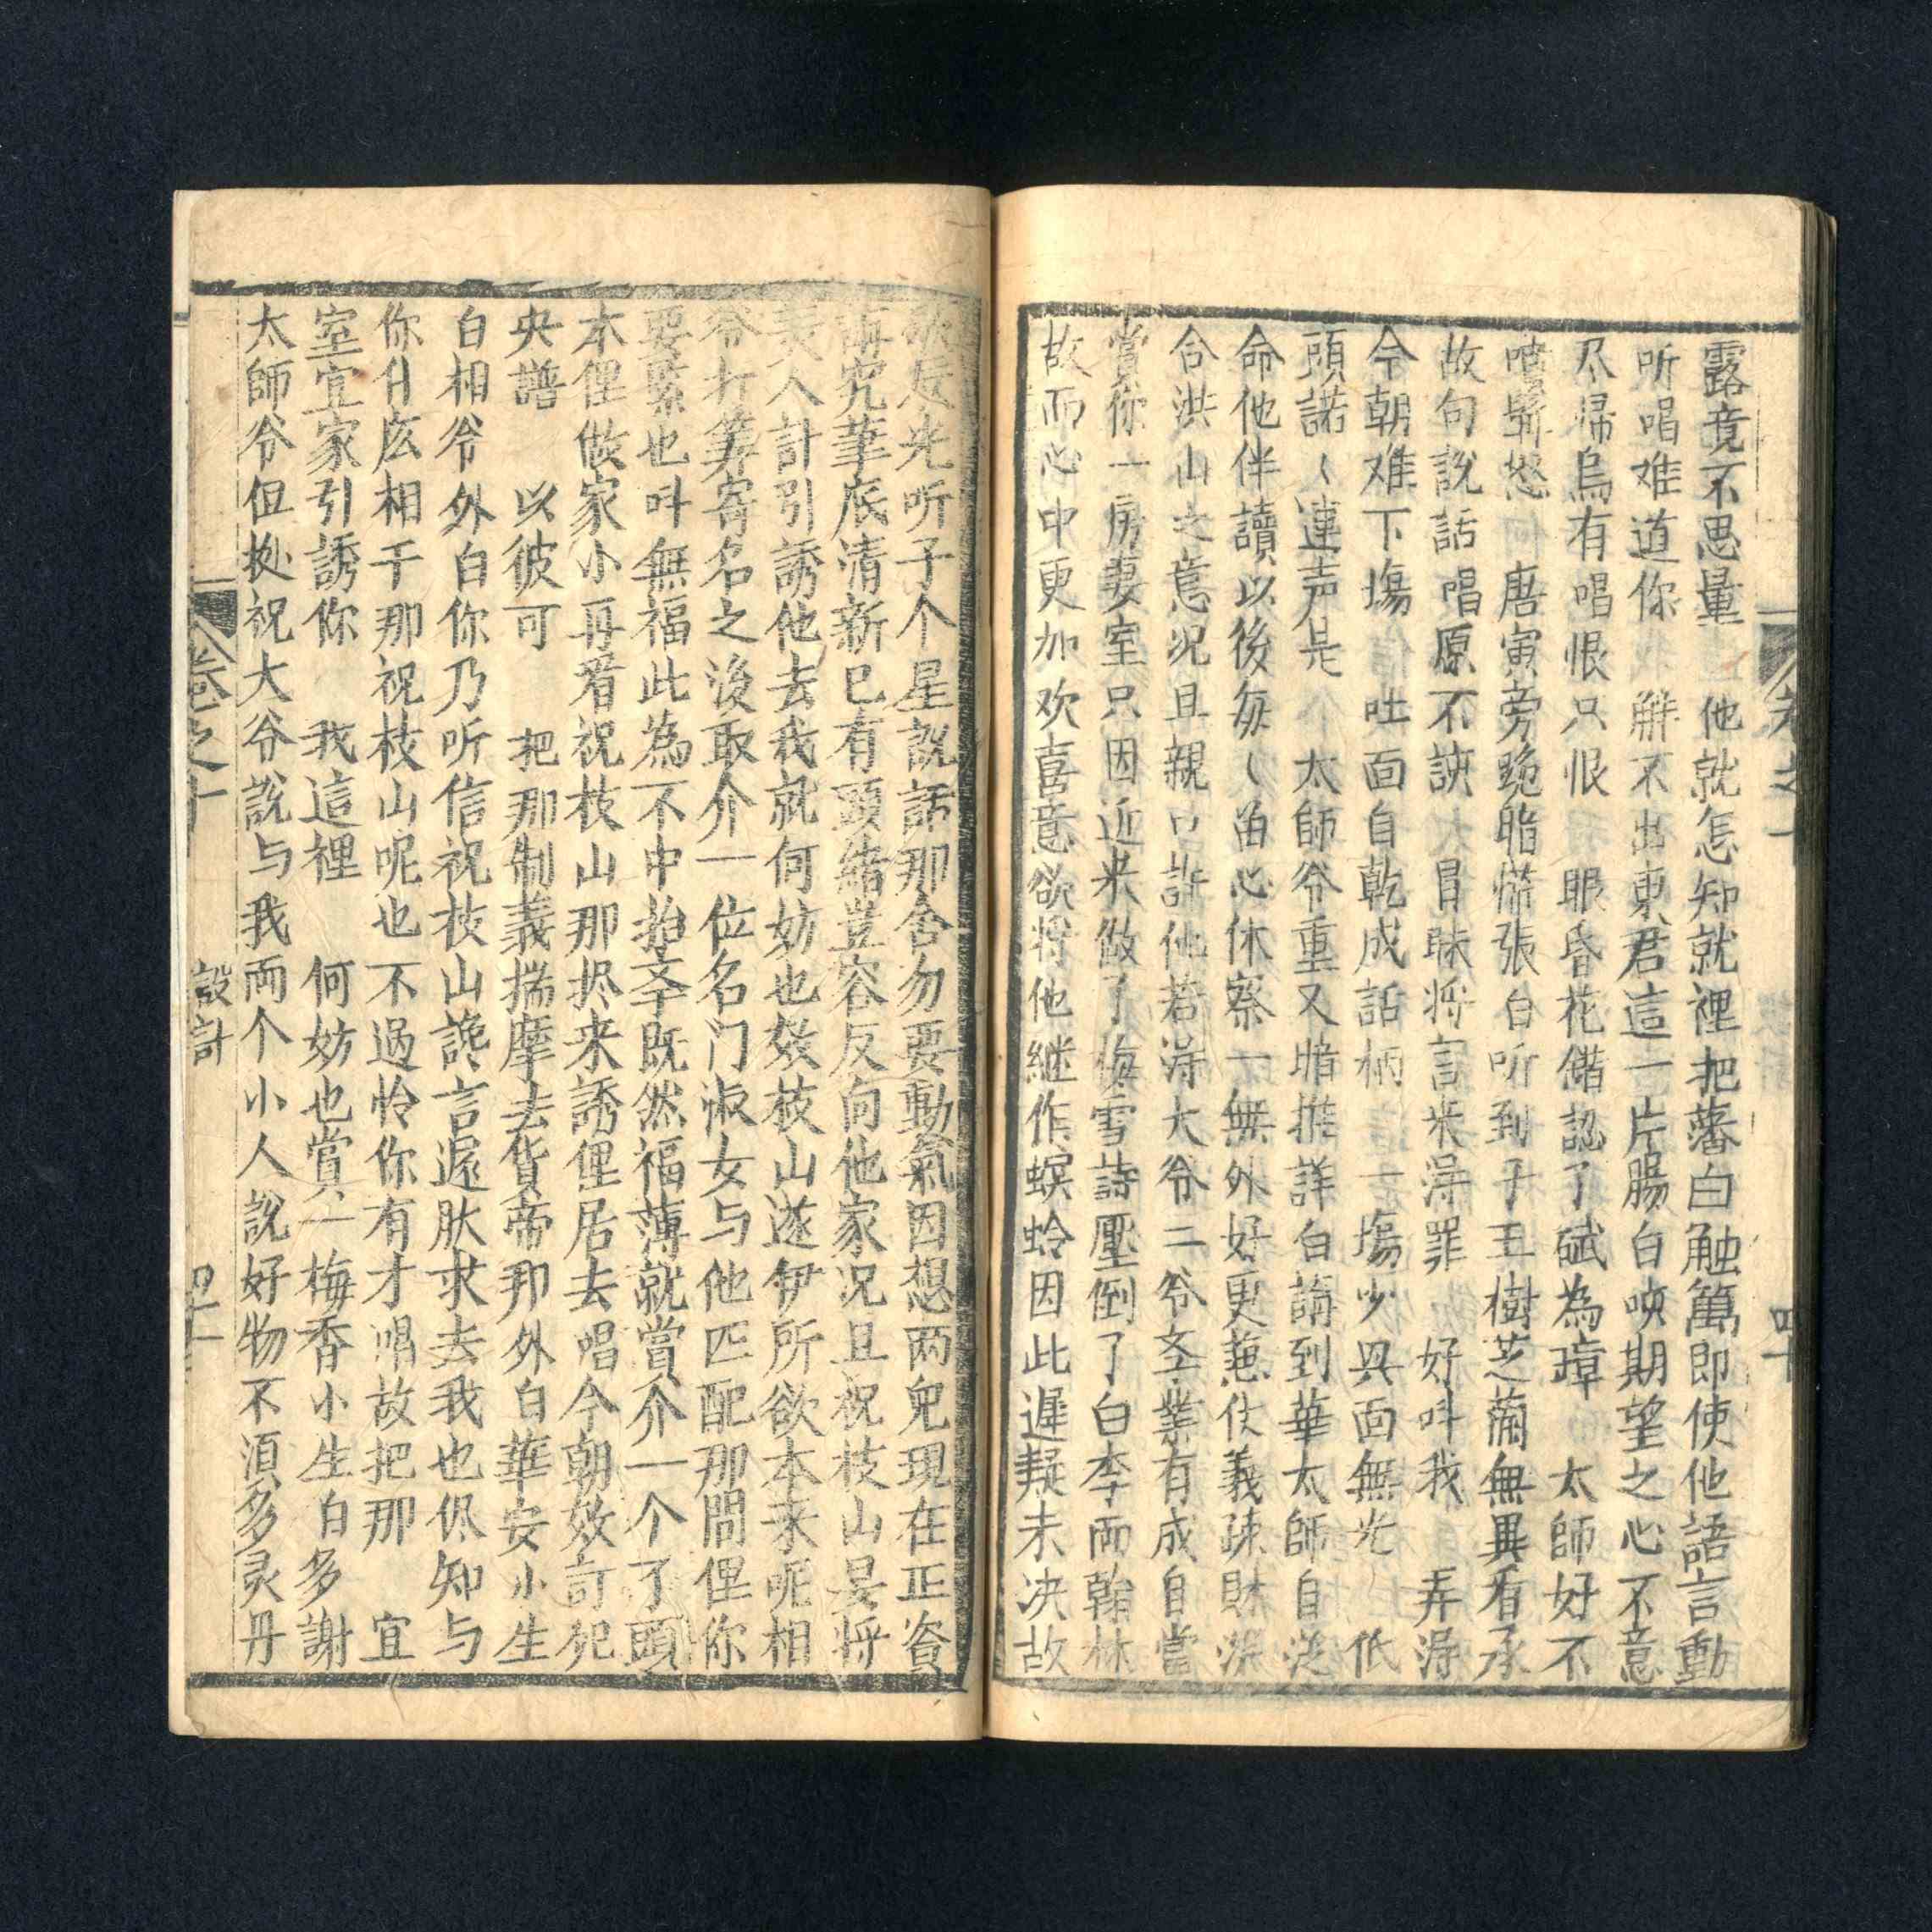 露竟不思量　他就怎知就裡把藩白触篱即使他語言動
听唱难道你　解不出東君這一片腸白唤期望之心不意
尽歸烏有唱恨只恨　眼昏花錯認了碔為璋　太師好不
愁　唐寅旁晚脂慌張白听到于玉樹芝蘭無異看承
故句說話唱原不諛　冒昧将言来淂罪　好呌我　弄淂
今朝难下塲　吐面自乾成話柄　一塲少興面無光　低
頭諾〱連声是　太師爷重又暗推詳白講到華太師自従
命他伴讀以後每〱畄心休察一無外好更慈仗義疎財
合洪山之意况且親口許他若淂大爷二爷文業有成自當
賞你一房妻室只因近来做了梅雪詩壓倒了白李两翰林
故而心中更加欢喜意欲将他継作螟蛉因此遲疑未决故
光听子个星說話那舍勿要動氣因想两兒現在正資
究筆底清新已有頭緒豈容反向他家况且祝枝山是将
美人計引誘他去我就何妨也效枝山遂伊所欲本来呢相
爷打筭寄名之後取介一位名门淑女与他匹配那間俚你
要緊也呌無福此為不中抬丞既然福薄就賞介一个了頭
本俚做家小再看祝枝山那挤来誘俚居去唱今朝效訂
央譜　以彼可　把那制義揣摩去貨帝那外白華安小生
白相爷外白你乃听信祝枝山讒言遽肰求去我也尽知与
你什庅相干那祝枝山呢也不過怜你有才唱故把那　宜
室宜家引誘你　我這裡　何妨也賞一梅香小生白多謝
太師爷但挨祝大爷說与我两个小人說好物不湏多灵丹
卷之十
設計
四十
卷之十
四十一